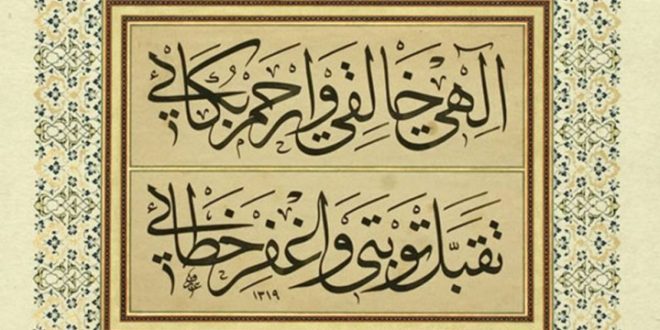 الٓهي خالقي وارحم بكائي
تقبل توبتي واغفر خطائي
١٣١٩